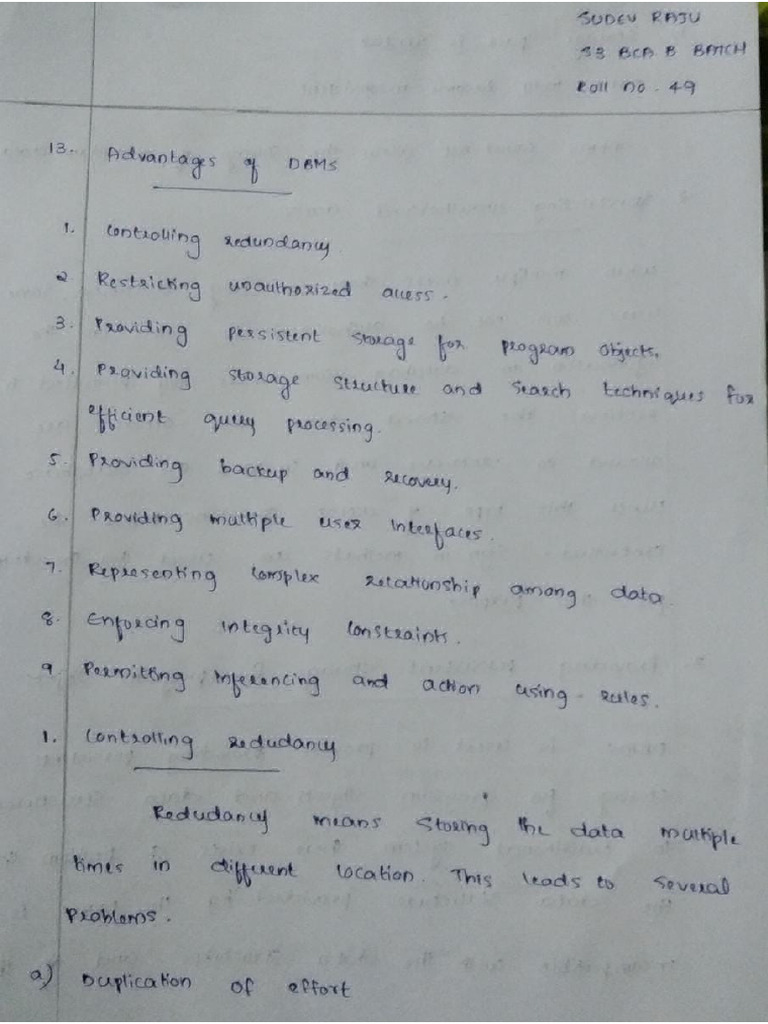 SUDEV RAJU
S3 BCA B BATCH
Roll no. 49
13. Advantages of DBMS
1. Controlling redundancy.
2 Restricting unauthorized access.
3. Providing persistent storage for program objects.
4. Providing storage structure and search techniques for
efficient query processing.
5. Providing backup and recovery.
6. Providing multiple user interfaces.
7. Representing complex relationship among data.
8. Enforcing integrity constraints.
9. Permitting inferencing and action using rules.
1. Controlling redudancy
Redudancy means storing the data multiple
times in different location. This leads to several
problems.
a) Duplication of effort